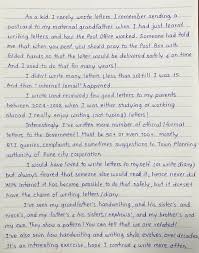 As a kid I rarely wrote letters. I remember sending a
postcard to my maternal grandfather when I had just learnt
writing letters and how the Post Office worked. Someone had told
me that when you post you should pray to the Post Box with
folded hands so that the letter would be delivered safely & on time
And I used to do that for many years!
I didn't write many letters (less than 20) till I was 15
And then "internet (email)" happened
I wrote (and received) few good letters to my parents
between 2004-2008, when I was either studying or working
abroad I really enjoy writing (not typing) letters!
Interestingly I've written more number of official/formal
letters to the Government must be 50+ or even 100, mostly
RTI queries, complaints and sometimes suggestions to Town Planning
authority of Pune city corporation.
I would have loved to write letters to myself (or write diary)
but always feared that someone else would read it, hence never did
With internet it has become possible to do that safely, but it doesn't have
the charm of writing letters/diary.
I've seen my grandfather's handwriting, and his sister's and
niece's, and my father's & his sisters/nephews', and my brother's and
my own. They show a pattern! You can tell that we are related!
I've also seen how handwriting and writing style evolves over decades
It's an interesting exercise, hope I continue to write more often,